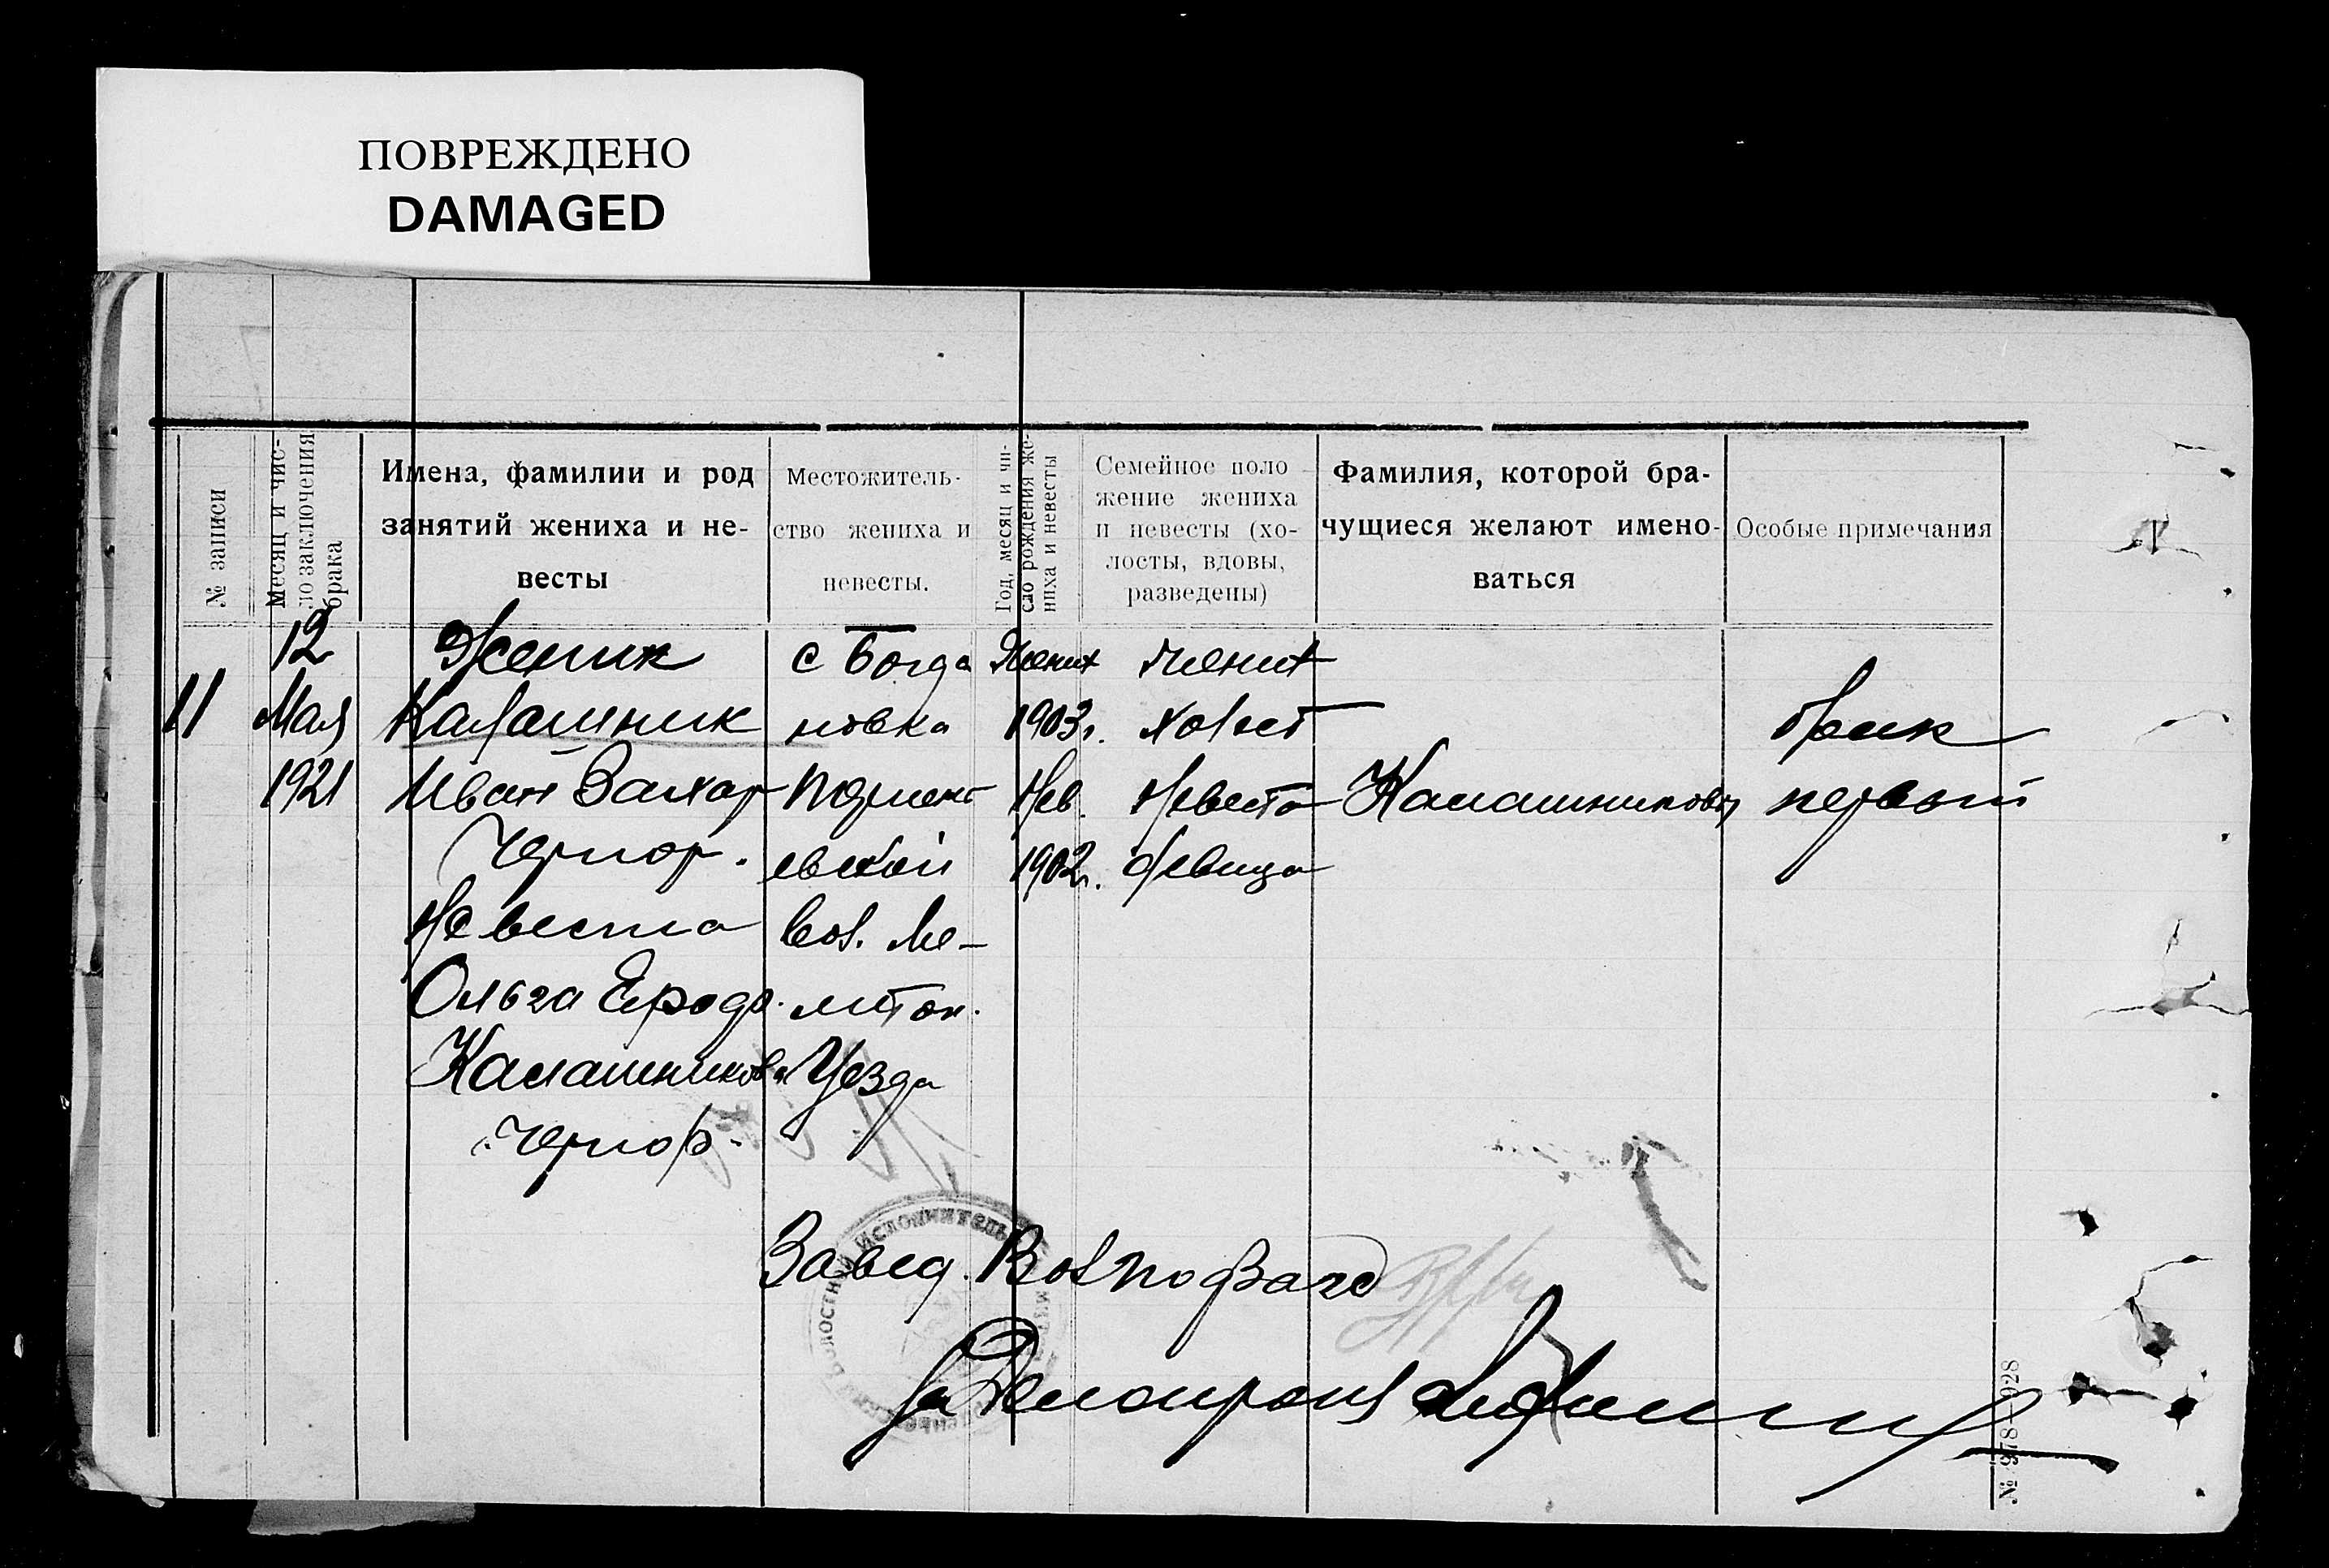 ПОВРЕЖДЕНО
DAMAGED
№ записи
Месяц и чис-
ло заключения
брака
Имена, фамилии и род
занятий жениха и не-
весты
Местожитель-
ство жениха и
невесты.
Год, месяц и чи-
сло рождения же-
ниха и невесты
Семейное поло
жение жениха
и невесты (хо-
лосты, вдовы,
разведены)
Фамилия, которой бра-
чущиеся желают имено-
ваться
Особые примечания
11
12
Мая
1921
Жених
Калашник
Иван Захар
Чернор.
Невеста
Ольга Ерофе.
Калашникова
Чернор.
с Богда
новка
евской
Вол. Ме-
литоп.
Уезда
Жених
1903г.
Нев.
1902г.
Жених
Холост
Невеста
девица
Калашниковы
брак
первый
Завед. Вол подЗагс
№ 978—928